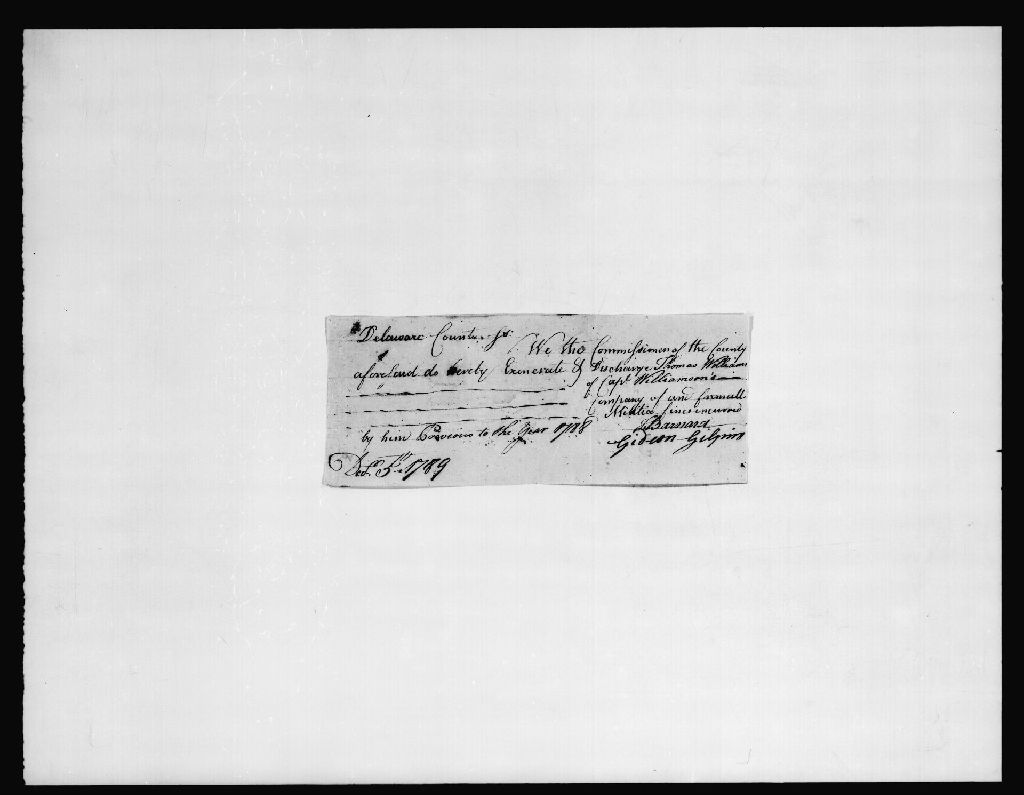 Delaware County Ss.
We the Commissioners of the County
aforesaid do hereby Exonerate & Discharge Thomas Williams
of Capt. Williamson's
Company of and from all
Militia fines incurred
by him Previous to the Year 1788
J Barnard
Gideon Gilpin
Decr. 5th 1789